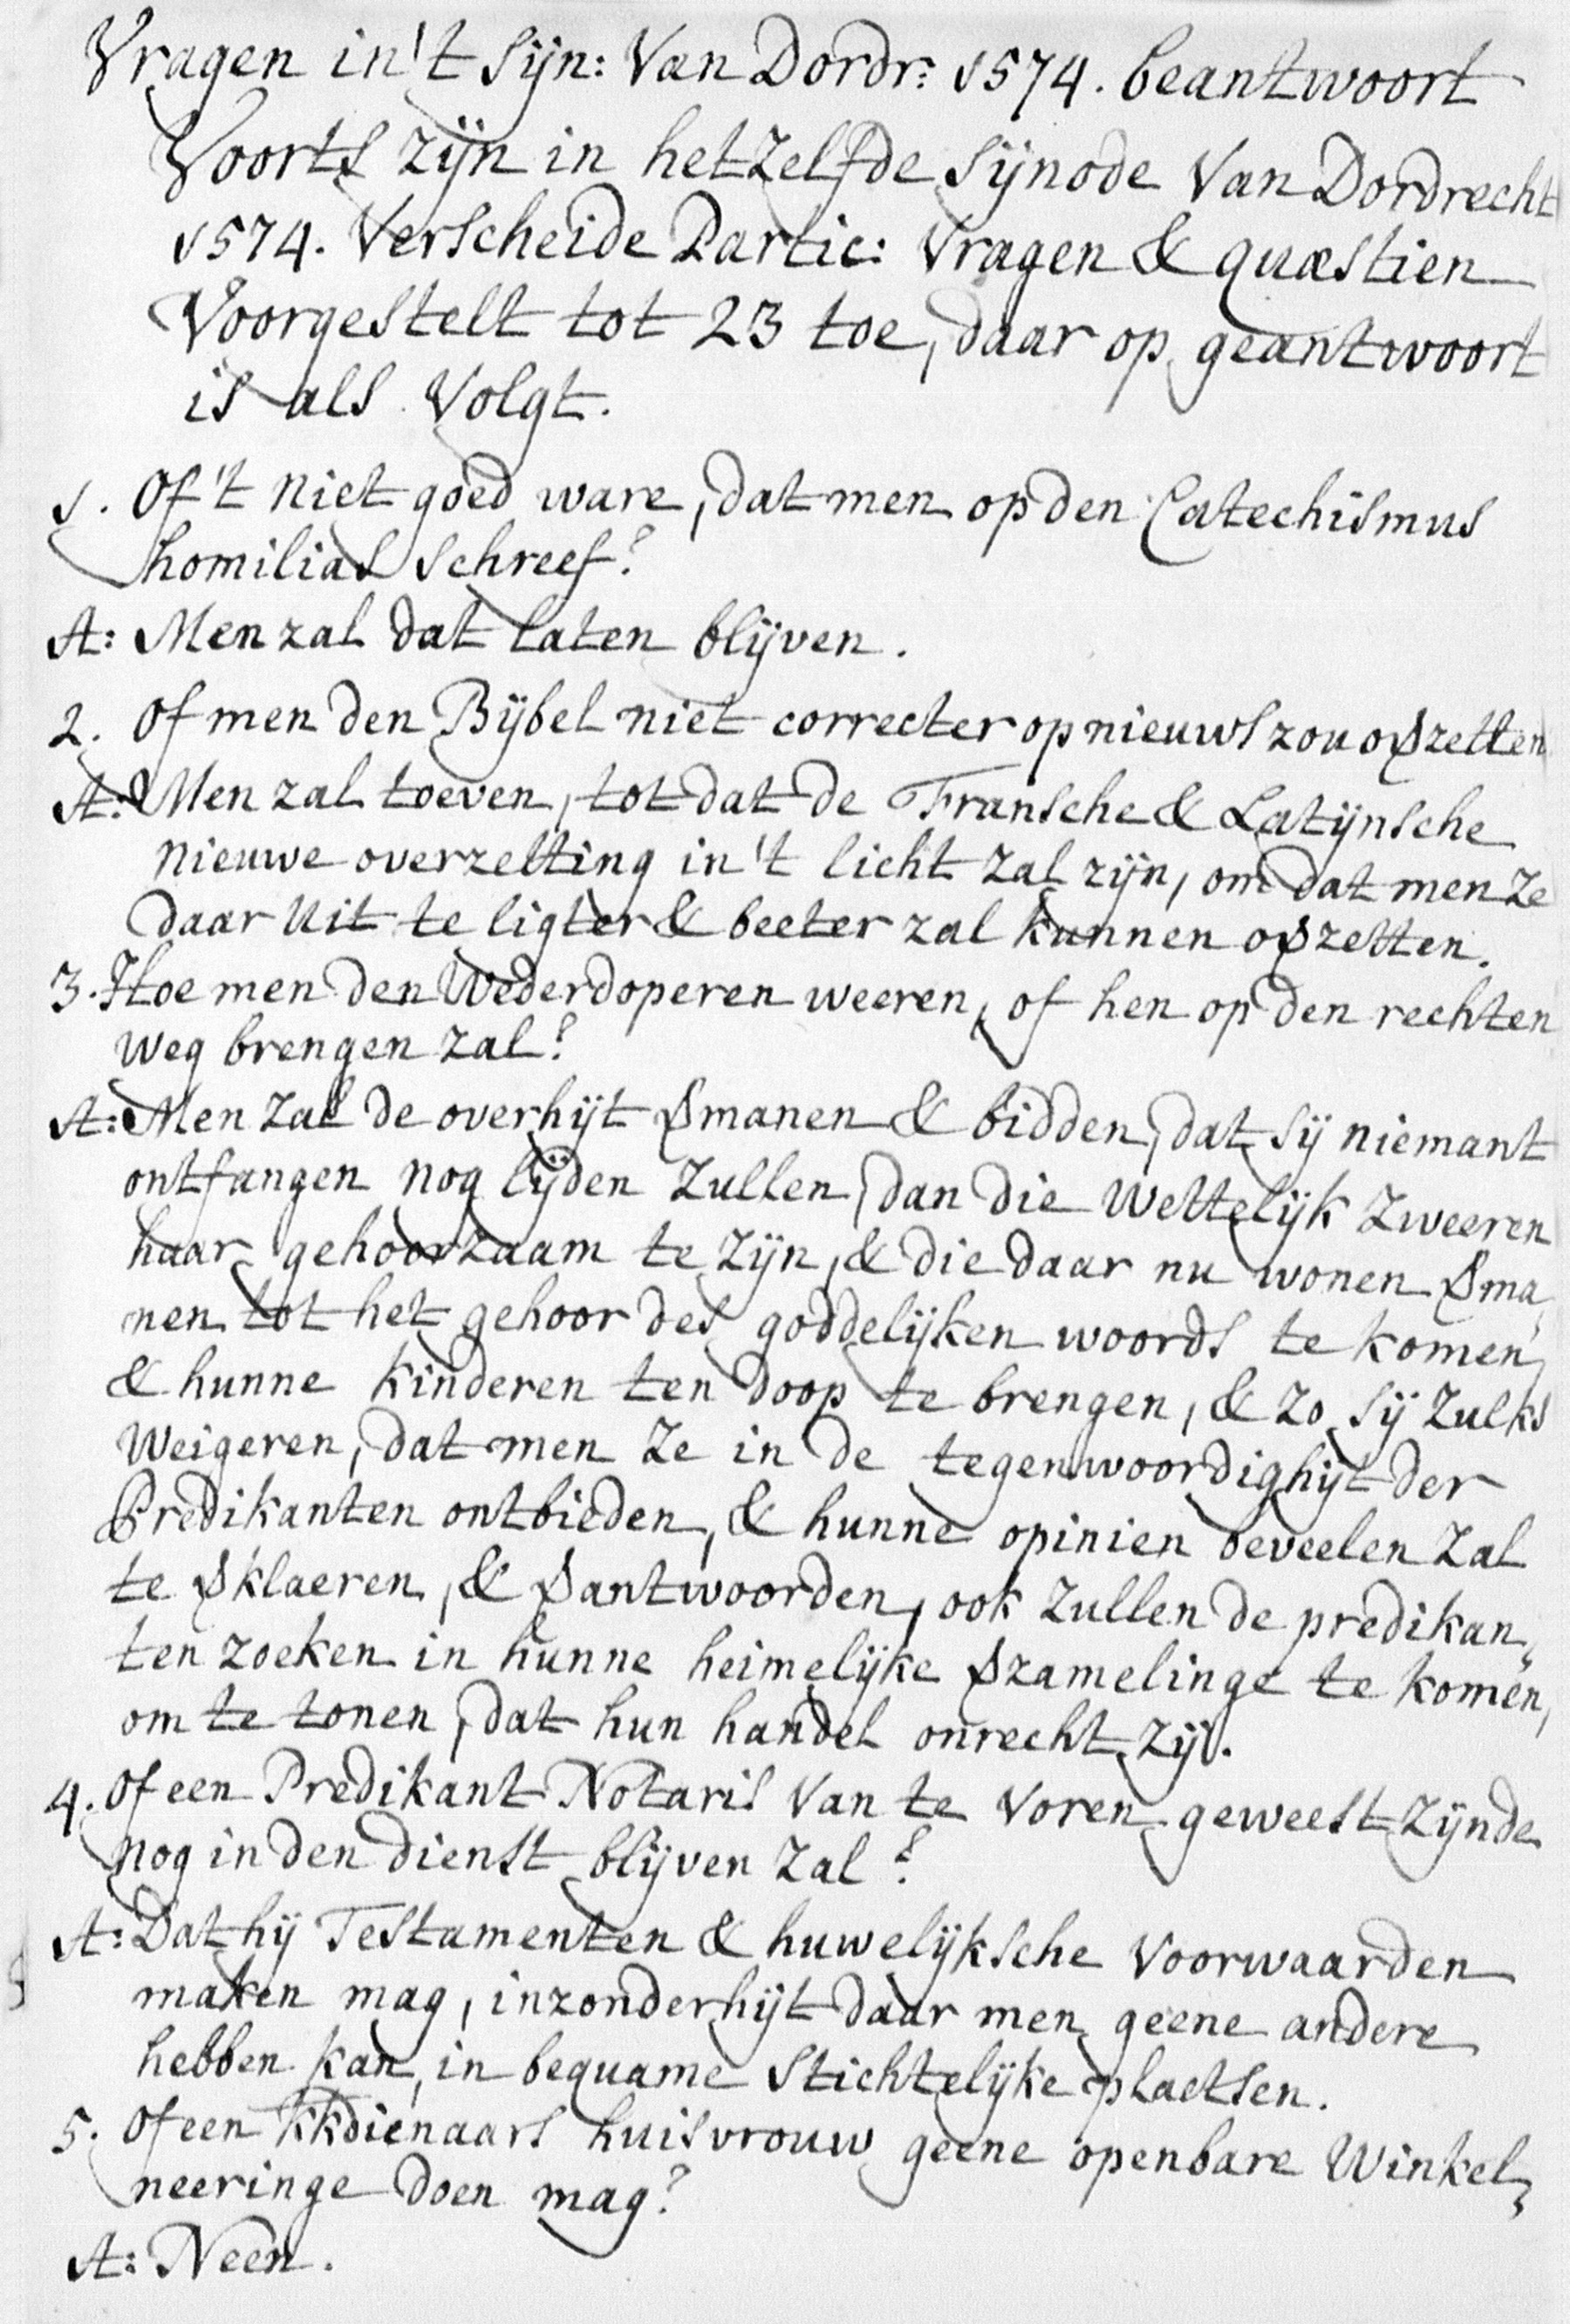 Vragen in't Sijn: Van Dordr: 1574. beantwoort
Voorts zijn in hetzelfde Sijnode Van Dordrecht
1574. Verscheide Partic: Vragen & quæstien
Voorgestelt tot 23 toe, daar op geantwoort
is als Volgt.
1. Of't niet goed ware, dat men op den Catechismus
homilias schreef?
A: Men zal dat laten blijven.
2. Of men den Bijbel niet correcter op nieuws zou oVzetten
A: Men zal toeven, tot dat de Fransche & Latijnsche
nieuwe overzetting in't licht zal zijn, om dat men ze
daar uit te ligter & beeter zal kunnen oVzetten.
3. Hoe men den Wederdoperen weeren, of hen op den rechten
weg brengen zal?
A: Men zal de overhijt Vmanen & bidden, dat sij niemant
ontfangen nog lijden zullen, dan die wettelijk zweeren
haar gehoorzaam te zijn, & die daar nu wonen Vma„
nen tot het gehoor des goddelijken woords te komen,
& hunne kinderen ten doop te brengen, & zo sij zulks
weigeren, dat men ze in de tegenwoordighijt der
Predikanten ontbieden, & hunne opinien beveelen zal
te Vklaeren, & Vantwoorden, ook zullen de predikan„
ten zoeken in hunne heimelijke Vzamelinge te komen,
om te tonen, dat hun handel onrecht zij.
4. Of een Predikant Notaris Van te voren geweest zijnde
nog in den dienst blijven zal?
A: Dat hij Testamenten & huwelijksche Voorwaarden
maken mag, inzonderhijt daar men geene andere
hebben kan, in bequame stichtelijke plaetsen.
5. Of een kkdienaars huisvrouw geene openbare Winkel„
neeringe doen mag?
A: Neen.